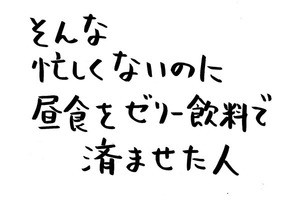 そんな
忙しくないのに
昼食をゼリー飲料で
済ませた人